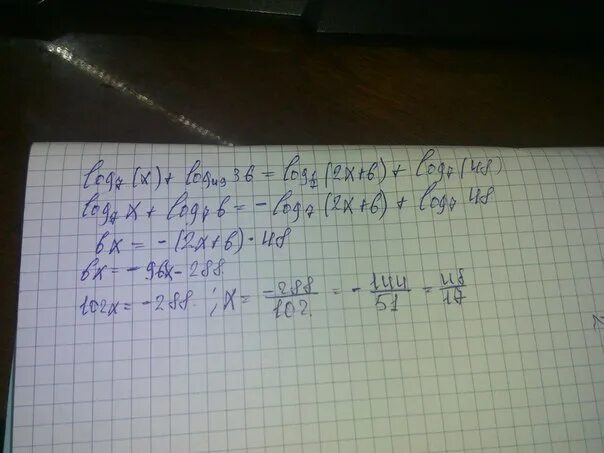 log₇(x) + log₄₉ 36 = log_{1/7}(2x+6) + log₇(48)
log₇ x + log₇ 6 = -log₇ (2x+6) + log₇ 48
6x = -(2x+6)·48
6x = -96x - 288
102x = -288 ; x = -288/102 = -144/51 = 48/17